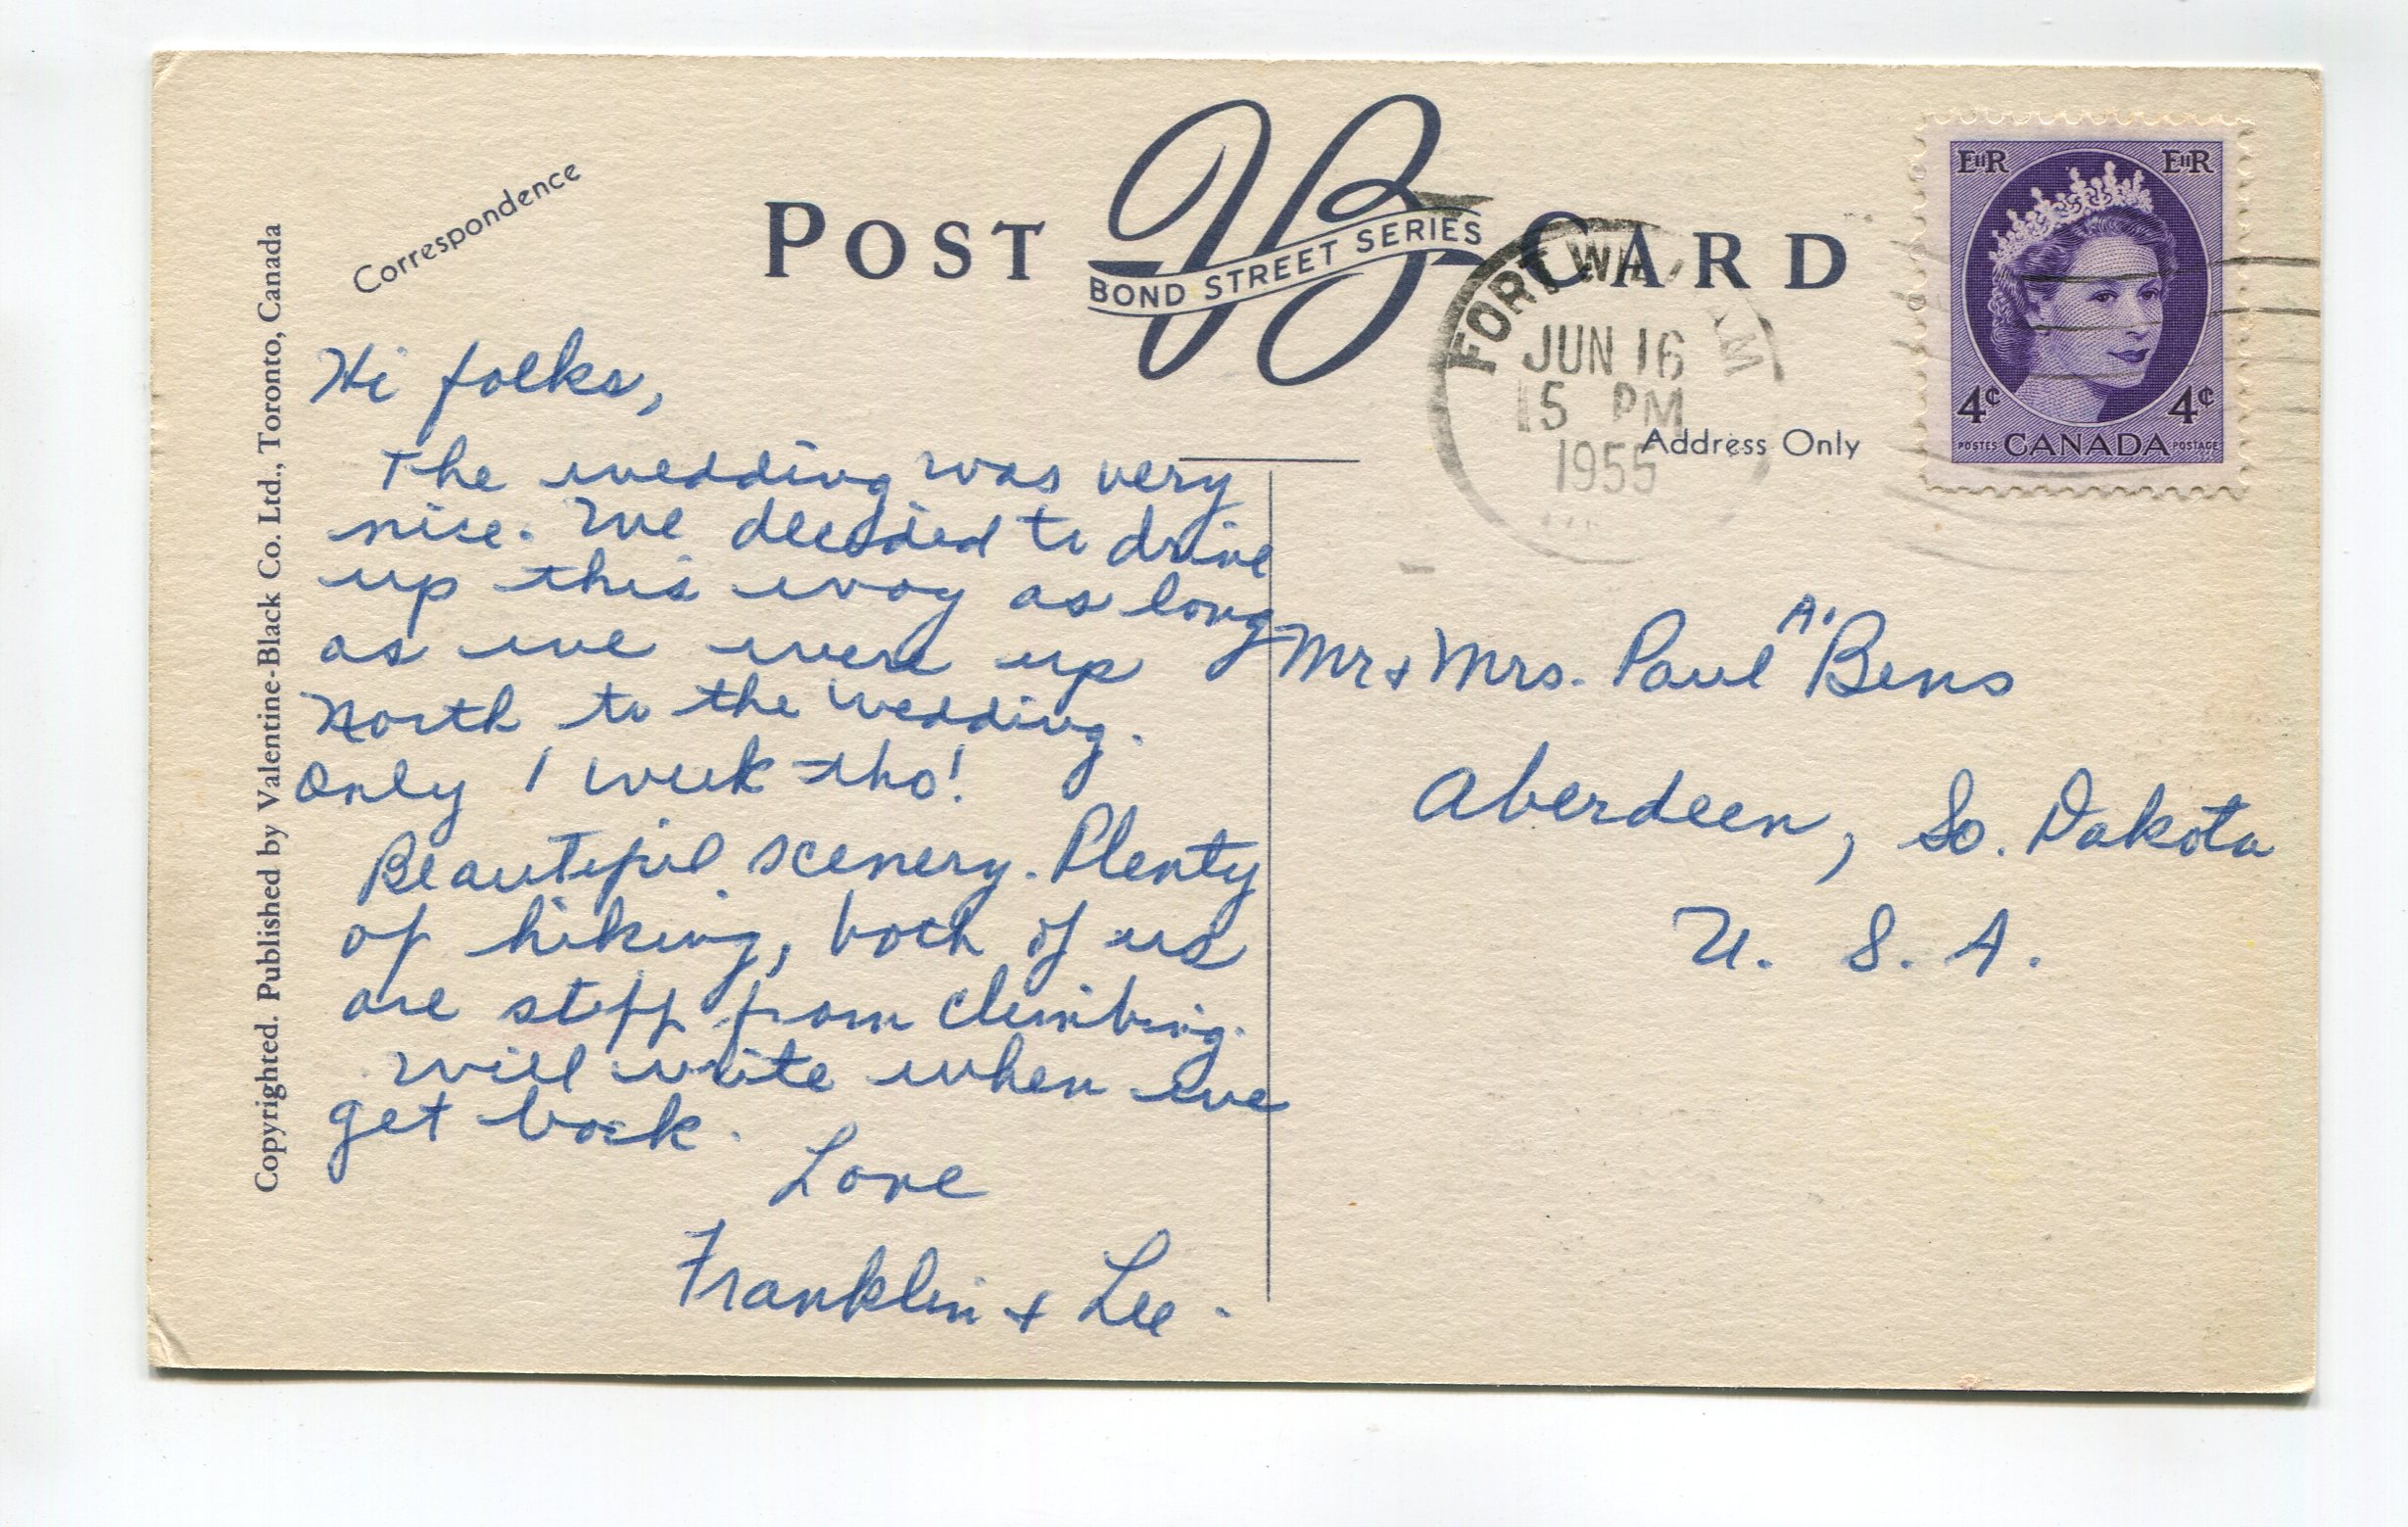 Correspondence
POST CARD
VB
BOND STREET SERIES
Copyrighted. Published by Valentine-Black Co. Ltd., Toronto, Canada
Hi folks,
The wedding was very
nise. We decided to drive
up this way as long
as we were up
North to the wedding.
Only 1 week tho!
Beautiful scenery. Plenty
of hiking, both of us
are stiff from climbing.
will write when we
get back.
Love
Franklin + Lee.
FORT WILLIAM
JUN 16
15 PM
1955
Address Only
EIIR EIIR
4¢ 4¢
POSTES CANADA POSTAGE
Mr + Mrs. Paul A. Bens
Aberdeen, So. Dakota
U. S. A.